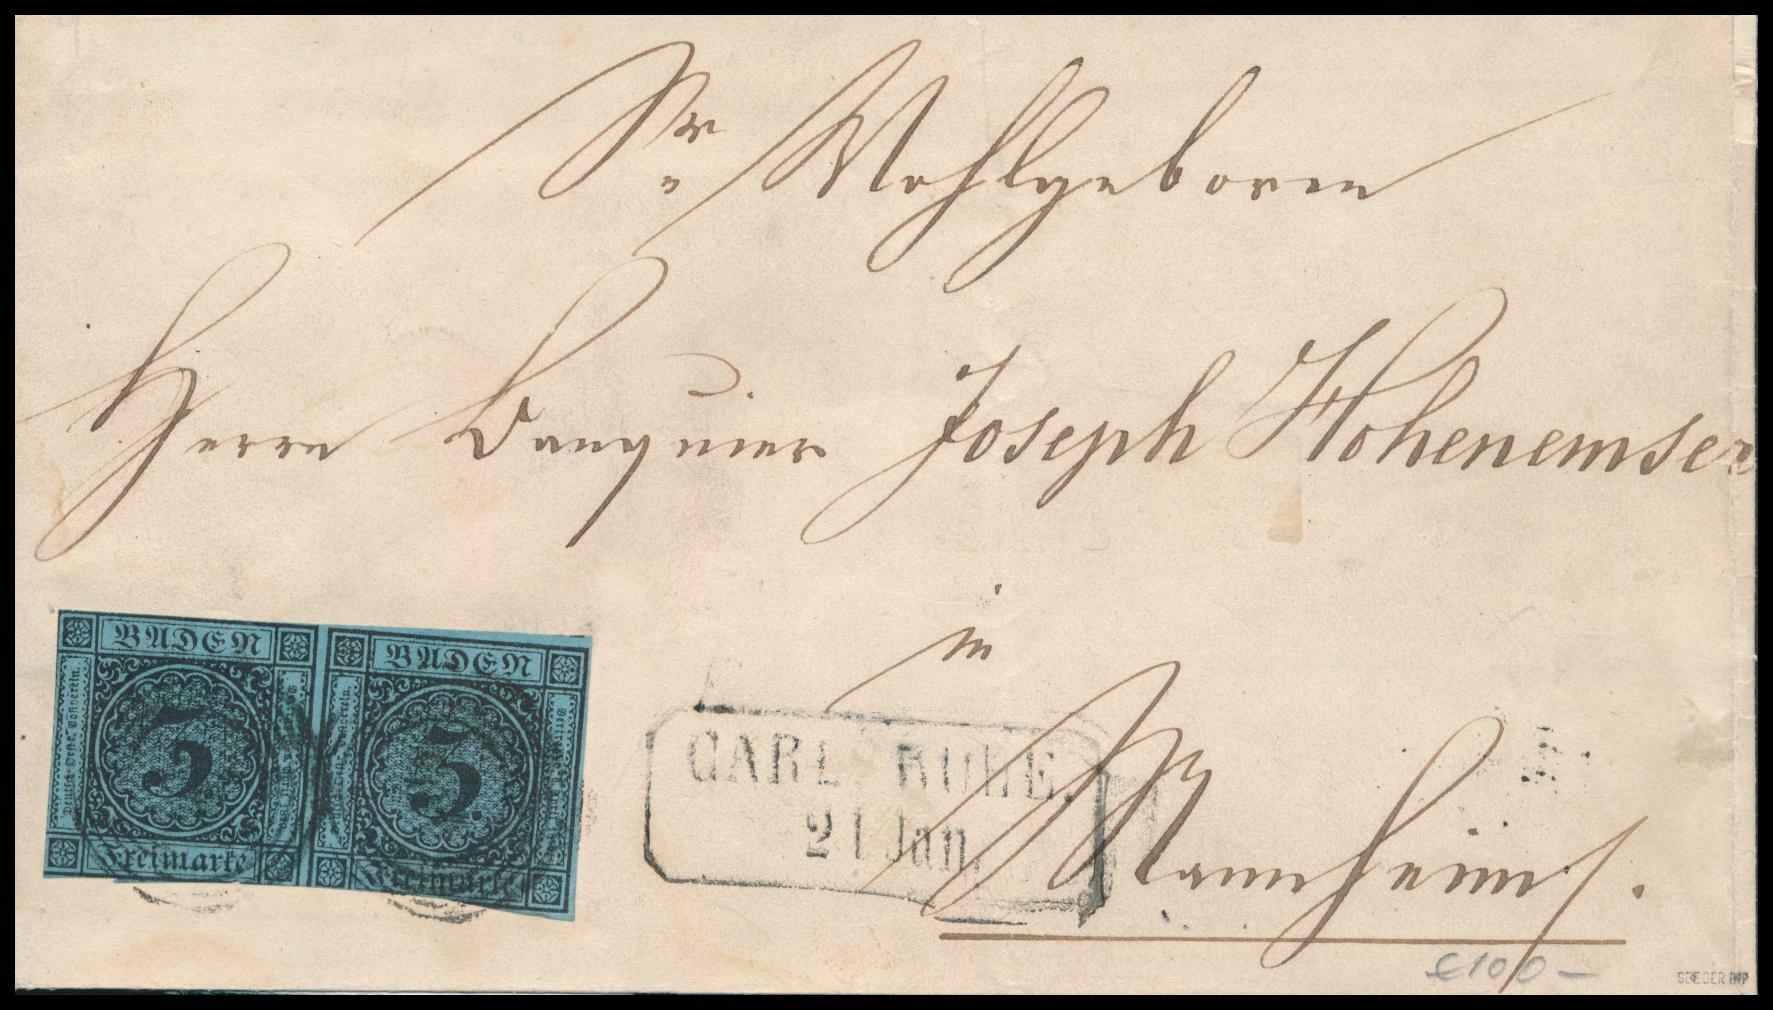 Sr. Wohlgeboren
Herrn Banquier Joseph Hohenemser
in
Mannheim
BADEN
3
Freimarke
BADEN
3
Freimarke
CARLSRUHE.
21 Jan.
€100-
SEEGER BPP